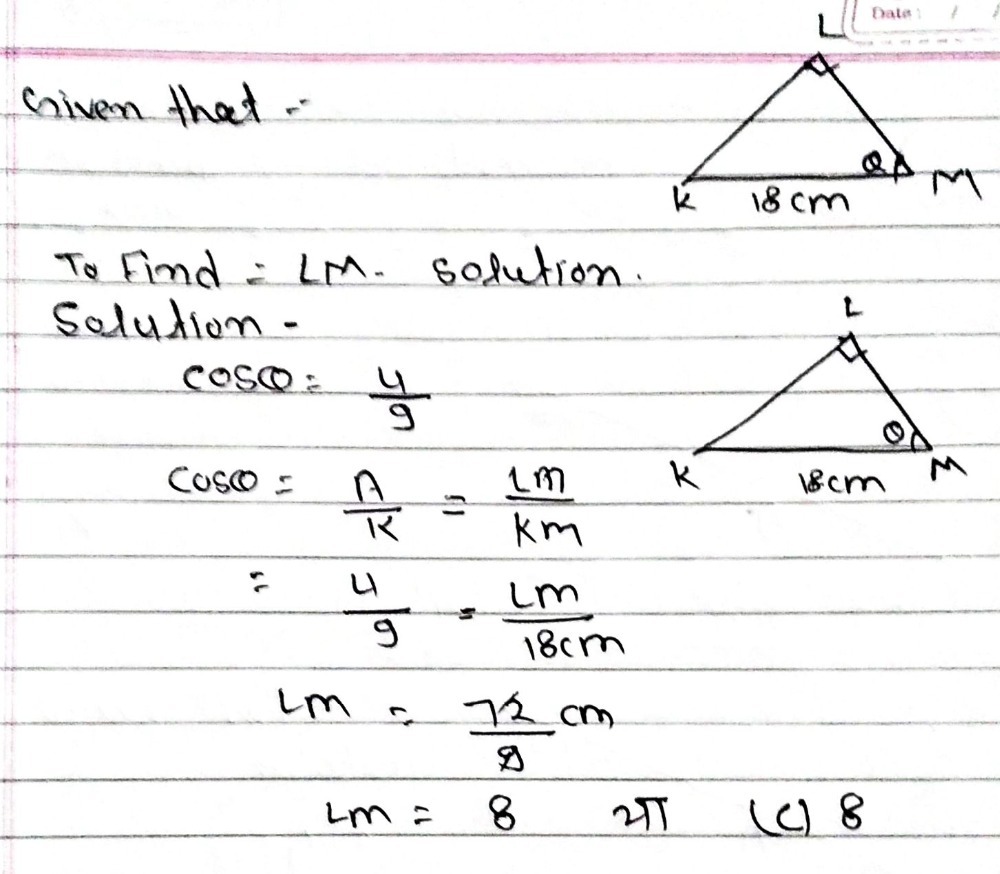 Date: / /
L
Given that -
θ
K 18 cm M
To Find = LM. Solution.
Solution -
L
cosθ = 4/9
θ
K 18cm M
cosθ = A/K = LM/KM
= 4/9 = LM/18cm
LM = 72/9 cm
LM = 8 या (C) 8